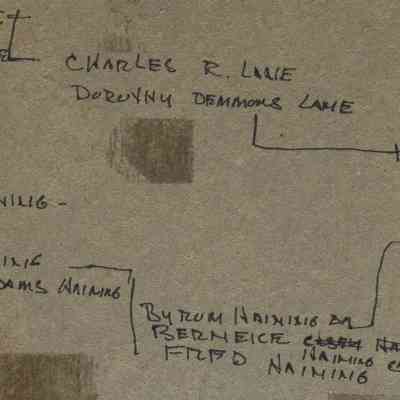 CHARLES R. LANE
DOROTHY DEMMONS LANE
NING -
NING
DAMS HAINING
BYRUM HAINING
BERNEICE
HAINING
FRED HAINING